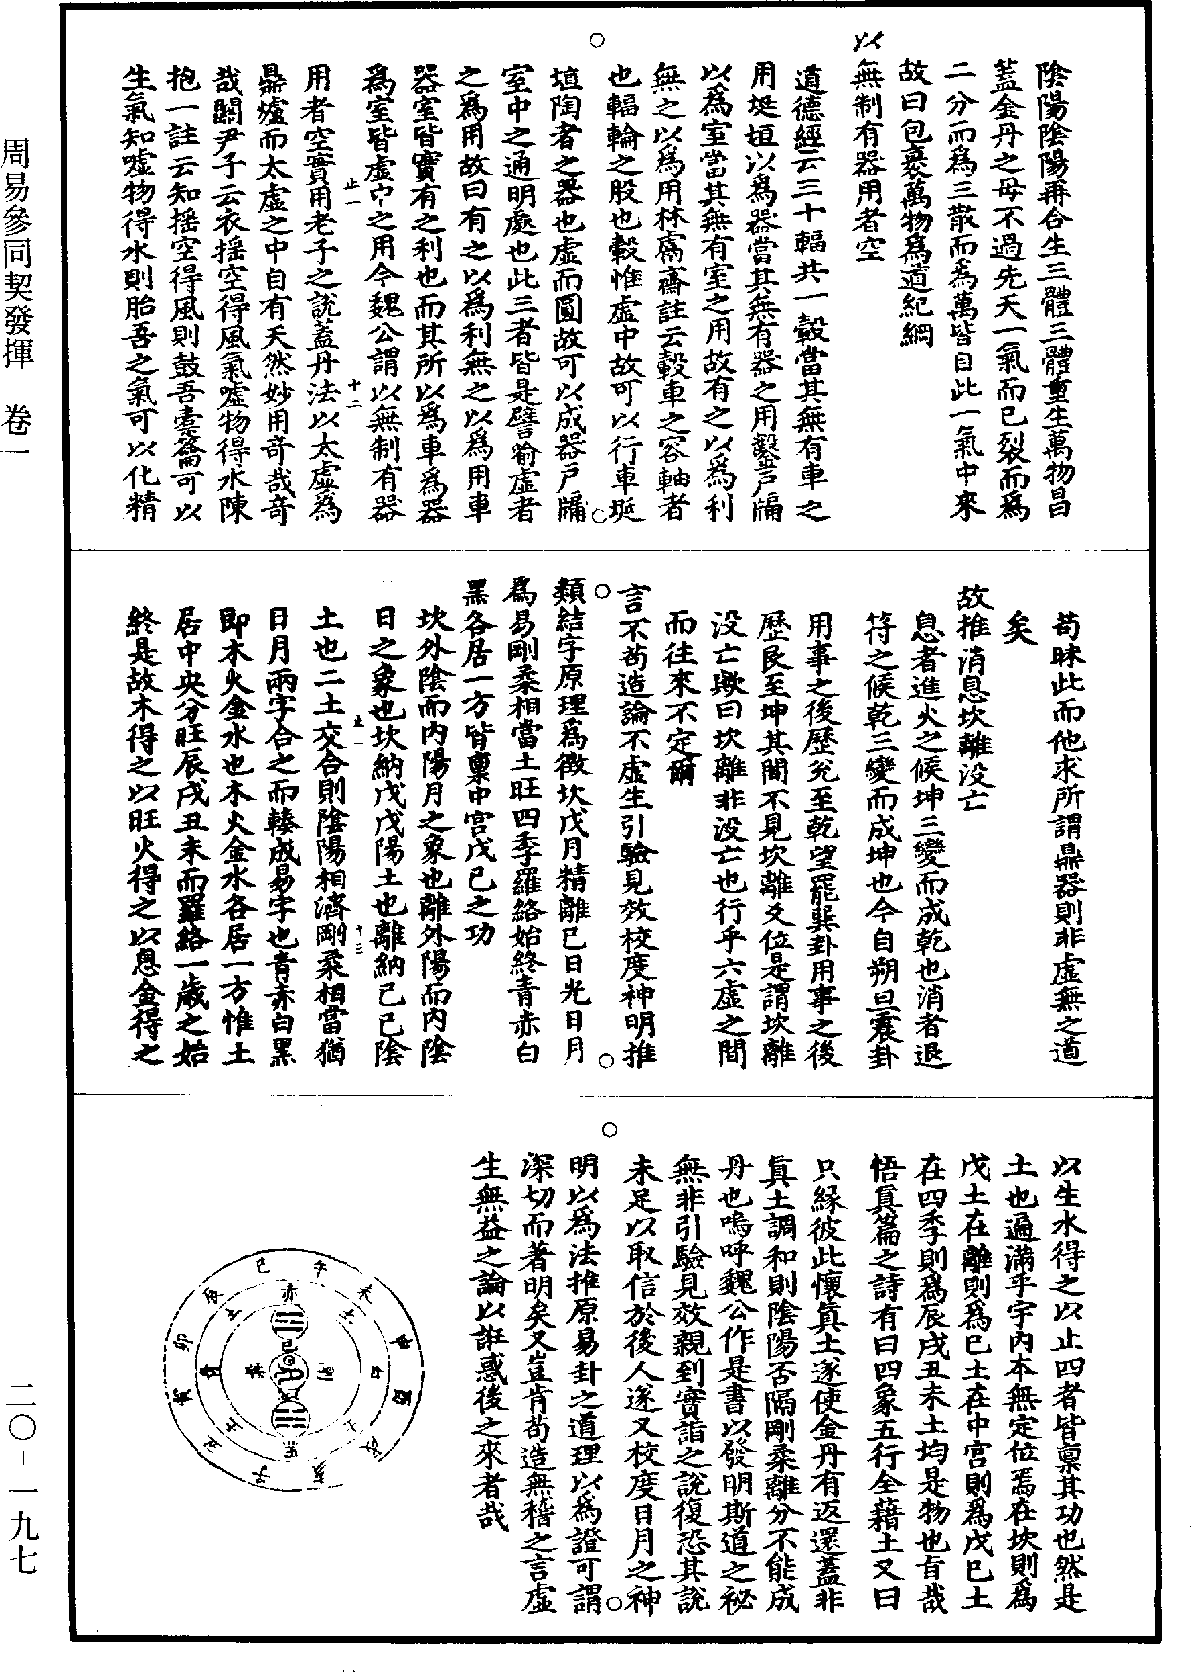 周易參同契發揮　卷一
二〇－一九七
陰陽陰陽再合生三體三體重生萬物昌
蓋金丹之母不過先天一氣而已裂而爲
二分而爲三散而爲萬皆自此一氣中來
故曰包裹萬物爲道紀綱
以無制有器用者空
道德經云三十輻共一轂當其無有車之
用埏埴以爲器當其無有器之用鑿戶牖
以爲室當其無有室之用故有之以爲利
無之以爲用林鬳齋註云轂車之容軸者
也輻輪之股也轂惟虛中故可以行車埏
埴陶者之器也虛而圓故可以成器戶牖
室中之通明處也此三者皆是譬喻虛者
之爲用故曰有之以爲利無之以爲用車
器室皆實有之利也而其所以爲車爲器
爲室皆虛中之用今魏公謂以無制有器
用者空實用老子之說蓋丹法以太虛爲
鼎爐而太虛之中自有天然妙用奇哉奇
哉關尹子云衣搖空得風氣噓物得水陳
抱一註云知搖空得風則鼓吾橐籥可以
生氣知噓物得水則胎吾之氣可以化精
苟昧此而他求所謂鼎器則非虛無之道
矣
故推消息坎離没亡
息者進火之候坤三變而成乾也消者退
符之候乾三變而成坤也今自朔旦震卦
用事之後歷兌至乾望罷巽卦用事之後
歷艮至坤其間不見坎離爻位是謂坎離
没亡歟曰坎離非没亡也行乎六虛之間
而往來不定爾
言不苟造論不虛生引驗見效校度神明推
類結字原理爲徵坎戊月精離己日光日月
爲易剛柔相當土旺四季羅絡始終青赤白
黑各居一方皆稟中宮戊己之功
坎外陰而內陽月之象也離外陽而內陰
日之象也坎納戊戊陽土也離納己己陰
土也二土交合則陰陽相濟剛柔相當猶
日月兩字合之而輳成易字也青赤白黑
即木火金水也木火金水各居一方惟土
居中央分旺辰戌丑未而羅絡一歲之始
終是故木得之以旺火得之以息金得之
以生水得之以止四者皆稟其功也然是
土也遍滿乎宇內本無定位焉在坎則爲
戊土在離則爲己土在中宮則爲戊己土
在四季則爲辰戌丑未土均是物也旨哉
悟眞篇之詩有曰四象五行全藉土又曰
只緣彼此懷眞土遂使金丹有返還蓋非
眞土調和則陰陽否隔剛柔離分不能成
丹也嗚呼魏公作是書以發明斯道之祕
無非引驗見效親到實詣之說復恐其說
未足以取信於後人遂又校度日月之神
明以爲法推原易卦之道理以爲證可謂
深切而著明矣又豈肯苟造無稽之言虛
生無益之論以誑惑後之來者哉
巳午未申酉戌亥子丑寅卯辰
赤
土
土
土
土
白
黑
青
己